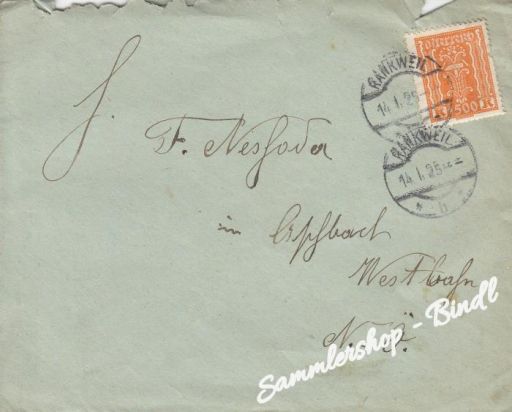 Österreich
500 K
RANKWEIL
14.I.25
RANKWEIL
14.I.25
* b *
F. Neshoda
in Aschbach
Westbahn
N.Ö
Sammlershop - Bindl